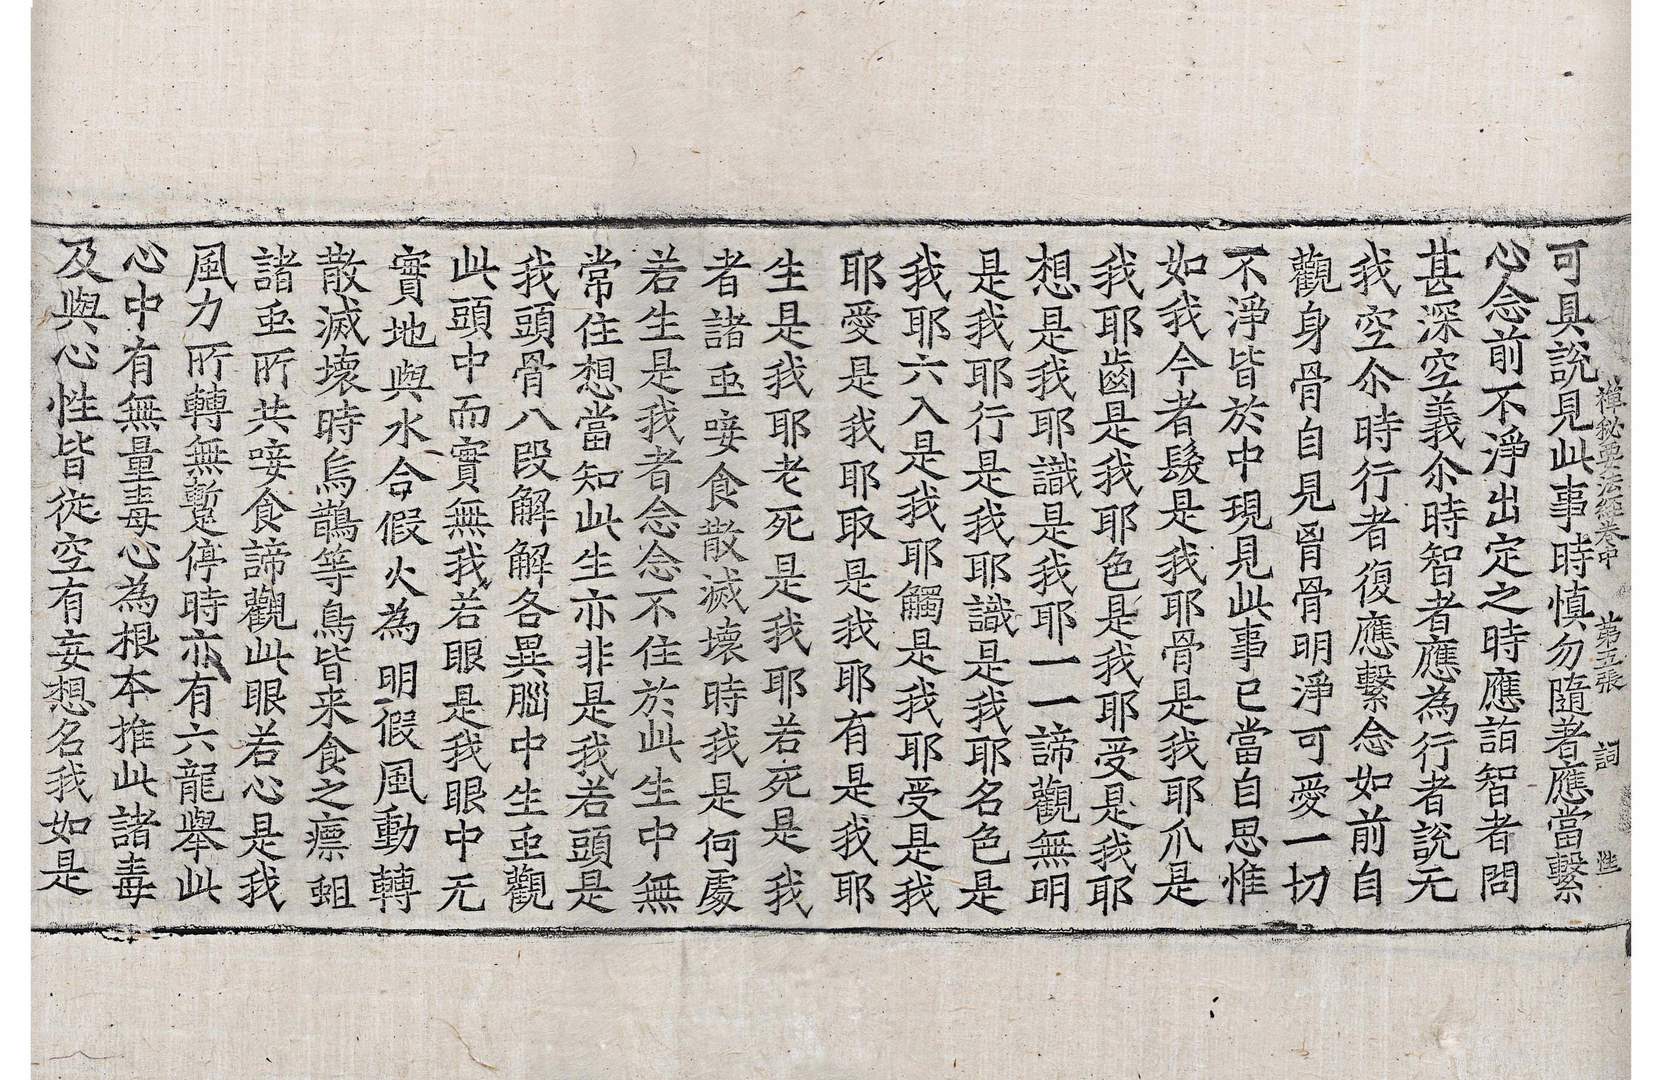 禪秘要法經卷中　第五張　詞
可具說見此事時慎勿隨者應當繫
心念前不淨出定之時應詣智者問
甚深空義尒時智者應為行者說无
我空尒時行者復應繫念如前自
觀身骨自見𦙄骨明淨可愛一切
不淨皆於中現見此事已當自思惟
如我今者髮是我耶骨是我耶爪是
我耶齒是我耶色是我耶受是我耶
想是我耶識是我耶一一諦觀無明
是我耶行是我耶識是我耶名色是
我耶六入是我耶觸是我耶受是我
耶愛是我耶取是我耶有是我耶
生是我耶老死是我耶若死是我
者諸䖝唼食散滅壞時我是何處
若生是我者念念不住於此生中無
常住想當知此生亦非是我若頭是
我頭骨八段解解各異腦中生䖝觀
此頭中而實無我若眼是我眼中无
實地與水合假火為明假風動轉
散滅壞時烏鵲等鳥皆来食之瘭蛆
諸䖝所共唼食諦觀此眼若心是我
風力所轉無暫停時亦有六龍舉此
心中有無量毒心為根本推此諸毒
及與心性皆從空有妄想名我如是